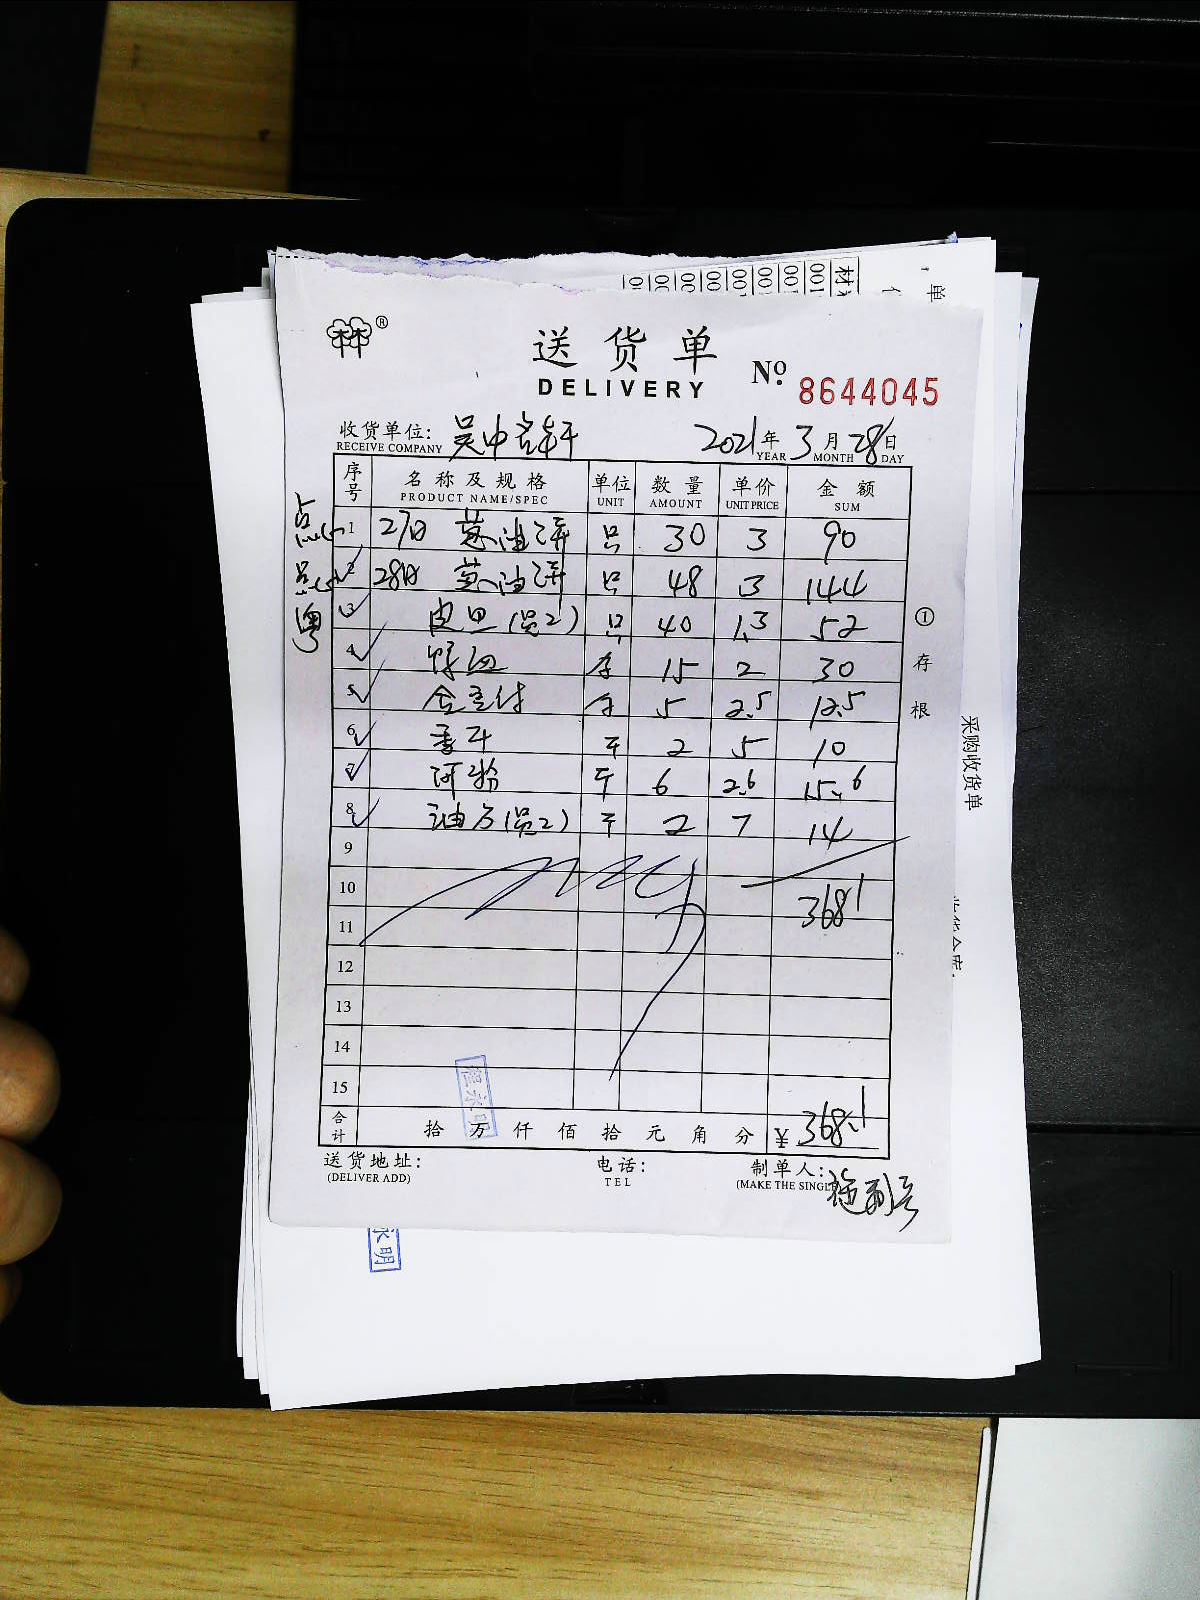 ®
送货单
DELIVERY
Nº. 8644045
收货单位: 吴中
RECEIVE COMPANY
2021年3月28日
YEAR MONTH DAY
序号 名称及规格 单位 数量 单价 金额
PRODUCT NAME/SPEC UNIT AMOUNT UNIT PRICE SUM
点心 1 27日 葱油饼 只 30 3 90
点心 2 28日 葱油饼 只 48 3 144
粤 3 皮旦(吴2) 只 40 1.3 52
4 15 2 30
5 5 2.5 12.5
6 斤 2 5 10
7 河粉 斤 6 2.6 15.6
8 油方(吴2) 斤 2 7 14
9
10 368.1
11
12
13
14
15
合计 拾万仟佰拾元角分 ¥ 368.1
送货地址:
(DELIVER ADD)
电话:
TEL
制单人:
(MAKE THE SINGLE
①存根
程永明
永明
采购收货单